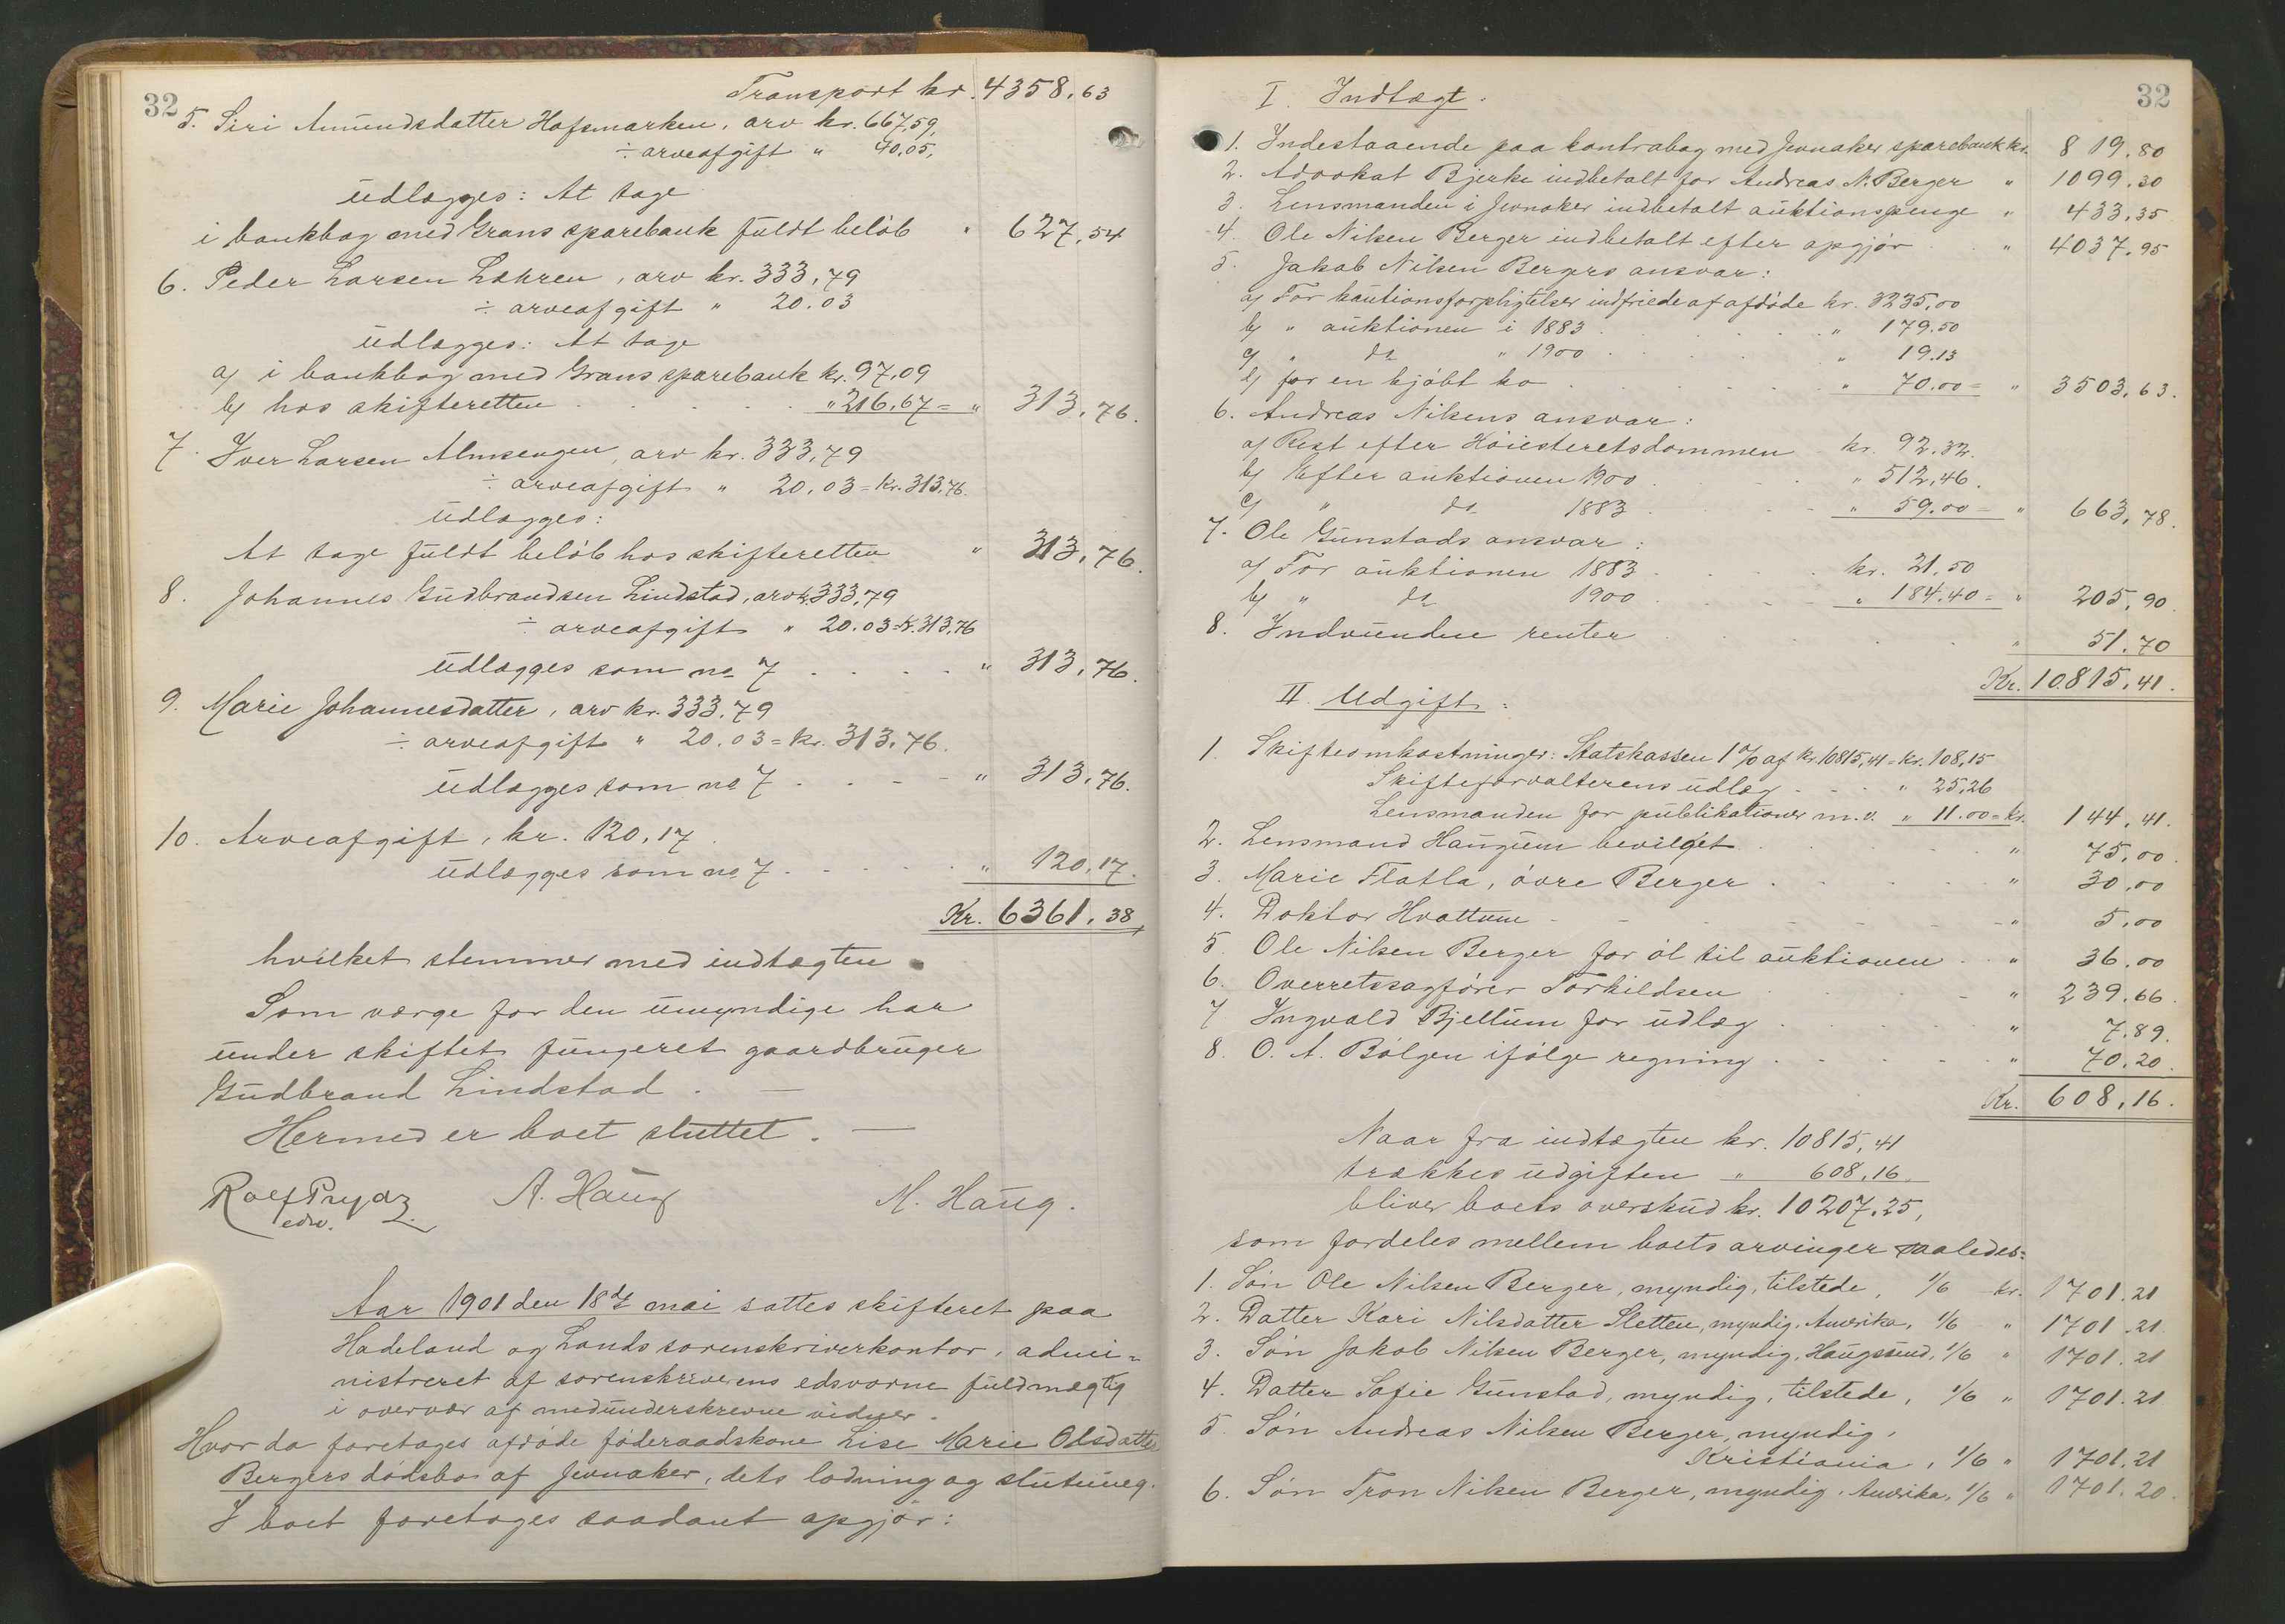 32
Transport kr. 4358.63
5. Siri Amundsdatter Hofsmarken, arv kr. 667,59,
÷ arveafgift " 40,05,
udlægges: At tage
i bankbog med Grans sparebank fuldt beløb " 627,54
6. Peder Larsen Løkren, arv kr. 333,79
÷ arveafgift " 20.03
udlægges: At tage
a) i bankbog med Grans sparebank kr. 97,09
b) hos skifteretten . . . . . " 216,67 = " 313,76.
7. Iver Larsen Almsengen, arv kr. 333,79
÷ arveafgift " 20,03 = kr. 313,76.
udlægges:
At tage fuldt beløb hos skifteretten " 313,76.
8. Johannes Gudbrandsen Lindstad, arv k. 333,79
÷ arveafgift " 20.03 = k. 313,76
udlægges som no 7 . . . . " 313,76.
9. Marie Johannesdatter, arv kr. 333,79
÷ arveafgift " 20.03 = kr. 313,76.
udlægges som no 7 . . - - " 313,76.
10. Arveafgift, kr. 120,17.
udlægges som no 7 . . . . . " 120,17.
Kr. 6361,38,
hvilket stemmer med indtægten.
Som værge for den umyndige har
under skiftet fungeret gaardbruger
Gudbrand Lindstad. —
Hermed er boet sluttet. —
Rolf Prydz A. Haug M. Haug.
edsv.
Aar 1901 den 18de mai sattes skifteret paa
Hadeland og Lands sorenskriverkontor, admi-
nistreret af sorenskriverens edsvorne fuldmægtig
i overvær af medunderskrevne vidner.
Hvor da foretages afdøde føderaadskone Lise Marie Olsdatter
Bergers dødsbo af Jevnaker, dets lodning og slutning.
I boet foretages saadant opgjør:
32
I. Indtægt.
1. Indestaaende paa kontrabog med Jevnaker sparebank kr. 819.80
2. Advokat Bjerke indbetalt for Andreas N. Berger " 1099.30
3. Lensmanden i Jevnaker indbetalt auktionspenge " 433,35
4. Ole Nilsen Berger indbetalt efter opgjør . . " 4037.95
5. Jakob Nilsen Bergers ansvar:
a) For kautionsforpligtelser indfriede af afdøde kr. 3235.00
b) " auktionen i 1883 . . . . . " 179.50
c) " do " 1900 . . . . . " 19.13
d) for en kjøbt ko . . . . . . " 70.00 = " 3503,63.
6. Andreas Nilsens ansvar:
a) Rest efter Høiesteretsdommen kr. 92,32.
b) Efter auktionen 1900 . . . . " 512,46.
c) " do 1883 . . . - - " 59.00 = " 663,78.
7. Ole Gunstads ansvar:
a) For auktionen 1883 . . . . kr. 21,50
b) " do 1900 . . - - " 184.40 = " 205,90.
8. Indvundne renter . . . . . " 51.70
Kr. 10.815,41.
II. Udgift:
1. Skifteomkostninger: Statskassen 1% af kr. 10815,41 = kr. 108,15
Skifteforvalterens udlæg . - - . " 25,26
Lensmanden for publikationer m.v. " 11.00 = kr. 144,41.
2. Lensmand Haugum bevilget . . . . . " 75,00.
3. Marie Flatla, øvre Berger . . . . . " 30,00
4. Doktor Hvattum - - - - - - " 5,00
5. Ole Nilsen Berger for øl til auktionen . . " 36.00
6. Overretssagfører Torkildsen . . . . . " 239.66.
7 Ingvald Bjellum for udlæg . . . . . " 7.89.
8. O. A. Bølgen ifølge regning . . . . . " 70.20.
Kr. 608,16.
Naar fra indtægten kr. 10815,41
trækkes udgiften " 608,16,
bliver boets overskud kr. 10207.25,
som fordeles mellem boets arvinger saaledes:
1. Søn Ole Nilsen Berger, myndig, tilstede, 1/6 kr. 1701.21
2. Datter Kari Nilsdatter Sletten, myndig, Amerika, 1/6 " 1701.21
3. Søn Jakob Nilsen Berger, myndig, Haugsund, 1/6 " 1701.21
4. Datter Sofie Gunstad, myndig, tilstede, 1/6 " 1701.21
5. Søn Andreas Nilsen Berger, myndig,
Kristiania, 1/6 " 1701.21
6. Søn Tron Nilsen Berger, myndig, Amerika, 1/6 " 1701.20.